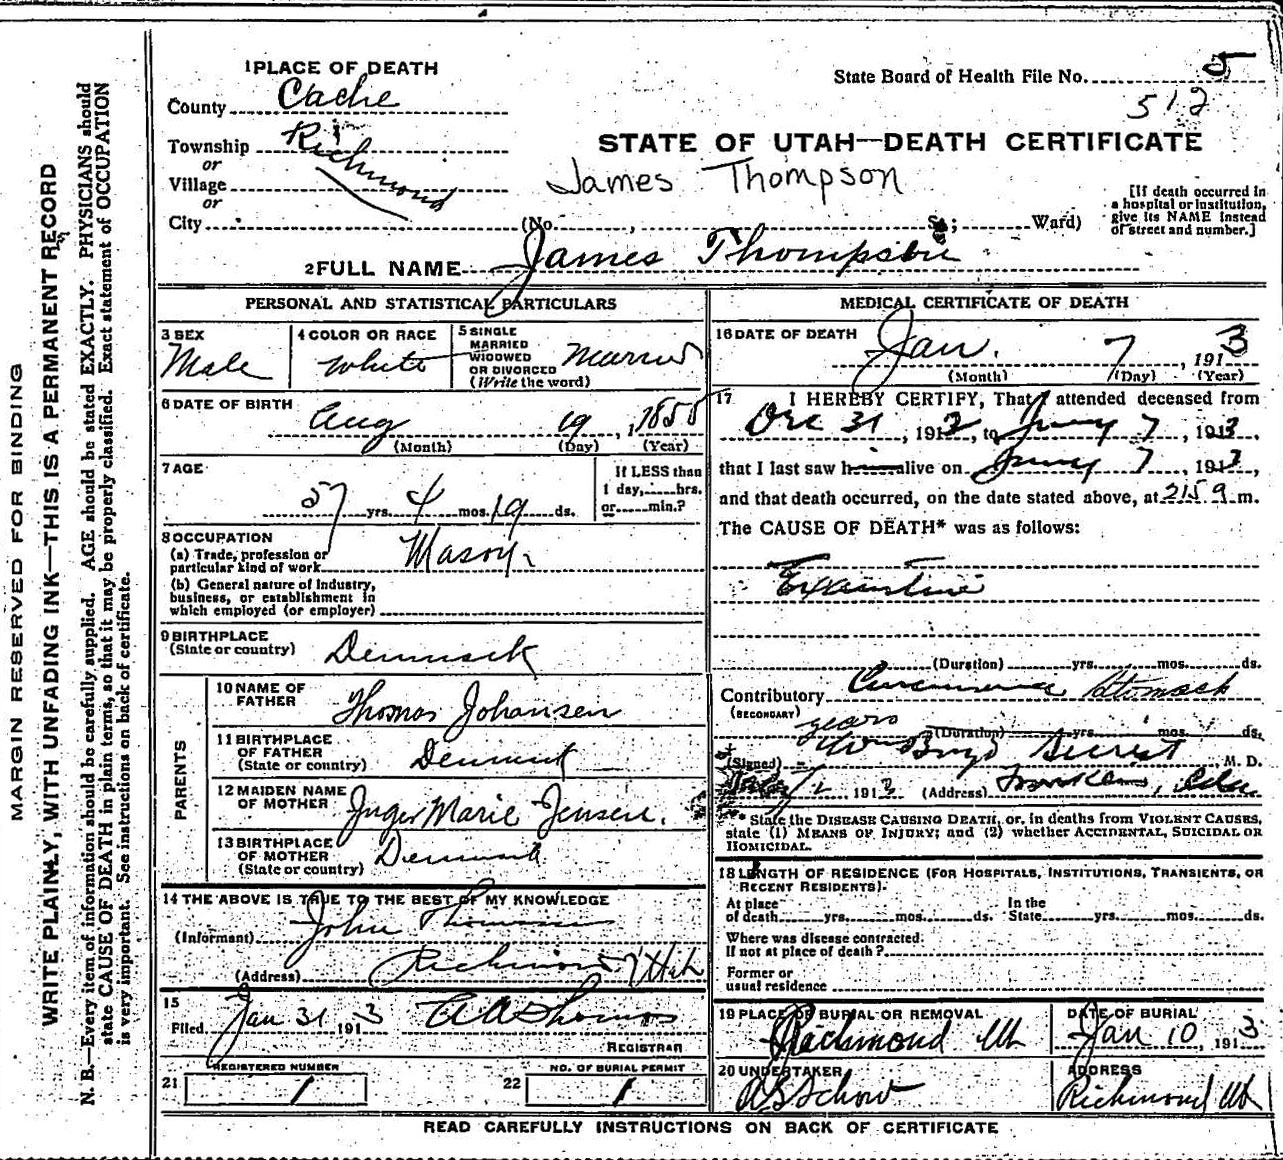 MARGIN RESERVED FOR BINDING
WRITE PLAINLY, WITH UNFADING INK—THIS IS A PERMANENT RECORD
N. B.—Every item of information should be carefully supplied. AGE should be stated EXACTLY. PHYSICIANS should
state CAUSE OF DEATH in plain terms, so that it may be properly classified. Exact statement of OCCUPATION
is very important. See instructions on back of certificate.
1 PLACE OF DEATH
County Cache
Township Richmond
or
Village
or
City
State Board of Health File No. 5
512
STATE OF UTAH—DEATH CERTIFICATE
James Thompson
(No. , St.; Ward)
[If death occurred in
a hospital or institution,
give its NAME instead
of street and number.]
2 FULL NAME James Thompson
PERSONAL AND STATISTICAL PARTICULARS
3 SEX
Male
4 COLOR OR RACE
White
5 SINGLE
MARRIED
WIDOWED
OR DIVORCED
(Write the word)
Married
6 DATE OF BIRTH
Aug 19, 1855
(Month) (Day) (Year)
7 AGE
57 yrs. 4 mos. 19 ds.
If LESS than
1 day, hrs.
or min.?
8 OCCUPATION
(a) Trade, profession or
particular kind of work Mason
(b) General nature of industry,
business, or establishment in
which employed (or employer)
9 BIRTHPLACE
(State or country) Denmark
PARENTS
10 NAME OF
FATHER Thomas Johansen
11 BIRTHPLACE
OF FATHER
(State or country) Denmark
12 MAIDEN NAME
OF MOTHER Inger Marie Jensen.
13 BIRTHPLACE
OF MOTHER
(State or country) Denmark
14 THE ABOVE IS TRUE TO THE BEST OF MY KNOWLEDGE
(Informant) John
(Address) Richmond Utah
15
Filed Jan 31 1913
REGISTRAR
REGISTERED NUMBER
21 1
NO. OF BURIAL PERMIT
22 1
MEDICAL CERTIFICATE OF DEATH
16 DATE OF DEATH
Jan. 7, 1913
(Month) (Day) (Year)
17 I HEREBY CERTIFY, That I attended deceased from
Dec 31, 1912, to Jany 7, 1913,
that I last saw h alive on Jany 7, 1913,
and that death occurred, on the date stated above, at m.
The CAUSE OF DEATH* was as follows:
(Duration) yrs. mos. ds.
Contributory Stomach
(SECONDARY)
years (Duration) yrs. mos. ds.
(Signed) M. D.
1913 (Address)
* State the DISEASE CAUSING DEATH, or, in deaths from VIOLENT CAUSES,
state (1) MEANS OF INJURY; and (2) whether ACCIDENTAL, SUICIDAL OR
HOMICIDAL.
18 LENGTH OF RESIDENCE (FOR HOSPITALS, INSTITUTIONS, TRANSIENTS, OR
RECENT RESIDENTS).
At place
of death yrs. mos. ds.
In the
State yrs. mos. ds.
Where was disease contracted.
If not at place of death?
Former or
usual residence
19 PLACE OF BURIAL OR REMOVAL
Richmond Ut
DATE OF BURIAL
Jan 10, 1913
20 UNDERTAKER
ADDRESS
Richmond Ut
READ CAREFULLY INSTRUCTIONS ON BACK OF CERTIFICATE